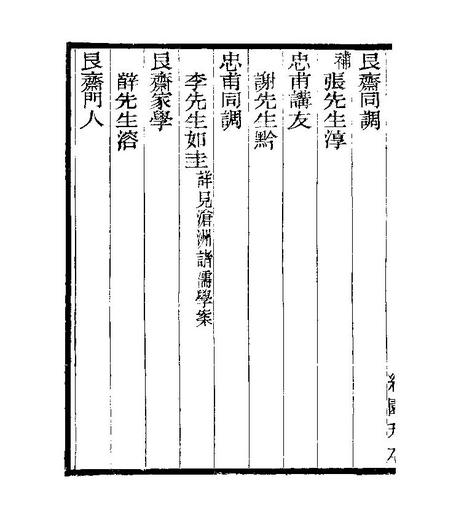 艮齋同調
補張先生淳
忠甫講友
謝先生黔
忠甫同調
李先生如圭詳見滄洲諸儒學案
艮齋家學
薛先生溶
艮齋門人